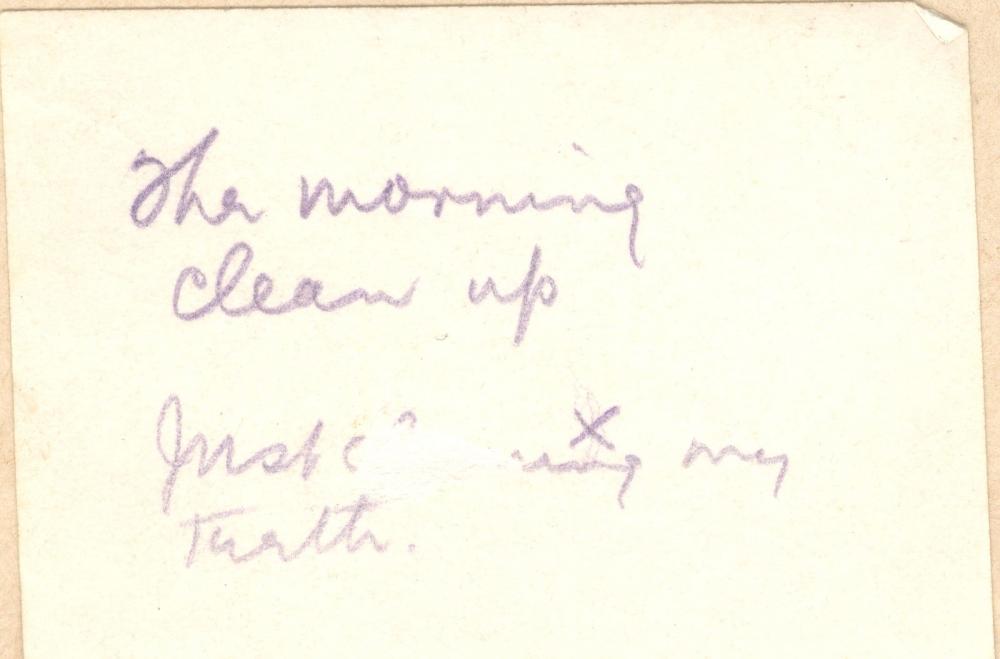 The morning
clean up
Just my
Teeth.